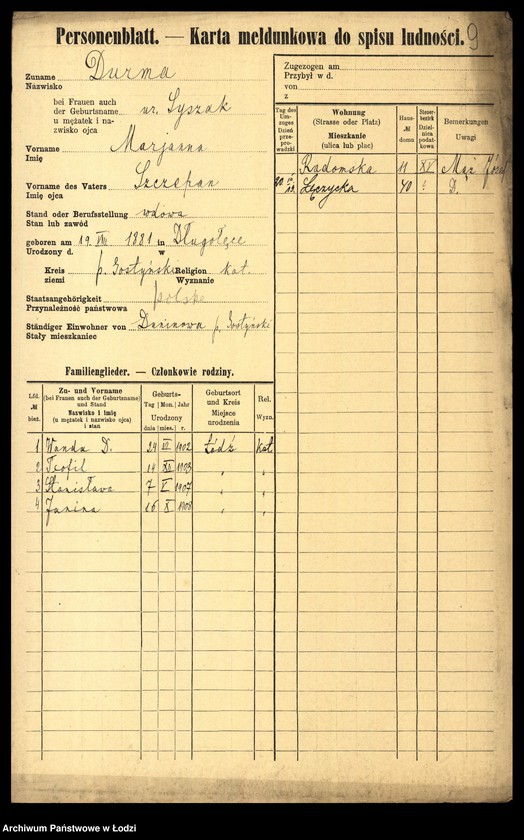 Personenblatt. — Karta meldunkowa do spisu ludności. 9
Zuname Durma
Nazwisko
bei Frauen auch
der Geburtsname ur. Łyszak
u mężatek i na-
zwisko ojca
Vorname Marjanna
Imię
Vorname des Vaters Szczepan
Imię ojca
Stand oder Berufsstellung wdowa
Stan lub zawód
geboren am 19. VIII 1881 in Długołęce
Urodzony d. w
Kreis p. Gostyński Religion kat.
ziemi Wyznanie
Staatsangehörigkeit polska
Przynależność państwowa
Ständiger Einwohner von Duninowa p. Gostyński
Stały mieszkaniec
Zugezogen am
Przybył w d.
von
z
Tag des Umzuges Dzień przeprowadzki
Wohnung (Strasse oder Platz) Mieszkanie (ulica lub plac)
Haus- № domu
Steuerbezirk Dzielnica podatkowa
Bemerkungen Uwagi
Radomska 11 XV Mąż Józef
Łęczycka 40 D.
Familienglieder. — Członkowie rodziny.
Lfd. № bież.
Zu- und Vorname (bei Frauen auch der Geburtsname) und Stand Nazwisko i imię (u mężatek i nazwisko ojca) i stan
Geburts- Tag Mon. Jahr Urodzony dnia mies. r.
Geburtsort und Kreis Miejsce urodzenia
Rel. Wyzn.
1 Wanda D. 1902 Łódź kat.
2 Teofil 14 XII 1903 " "
3 Stanisława 7 V 1907 " "
4 Janina 16 X 1908 " "
Archiwum Państwowe w Łodzi